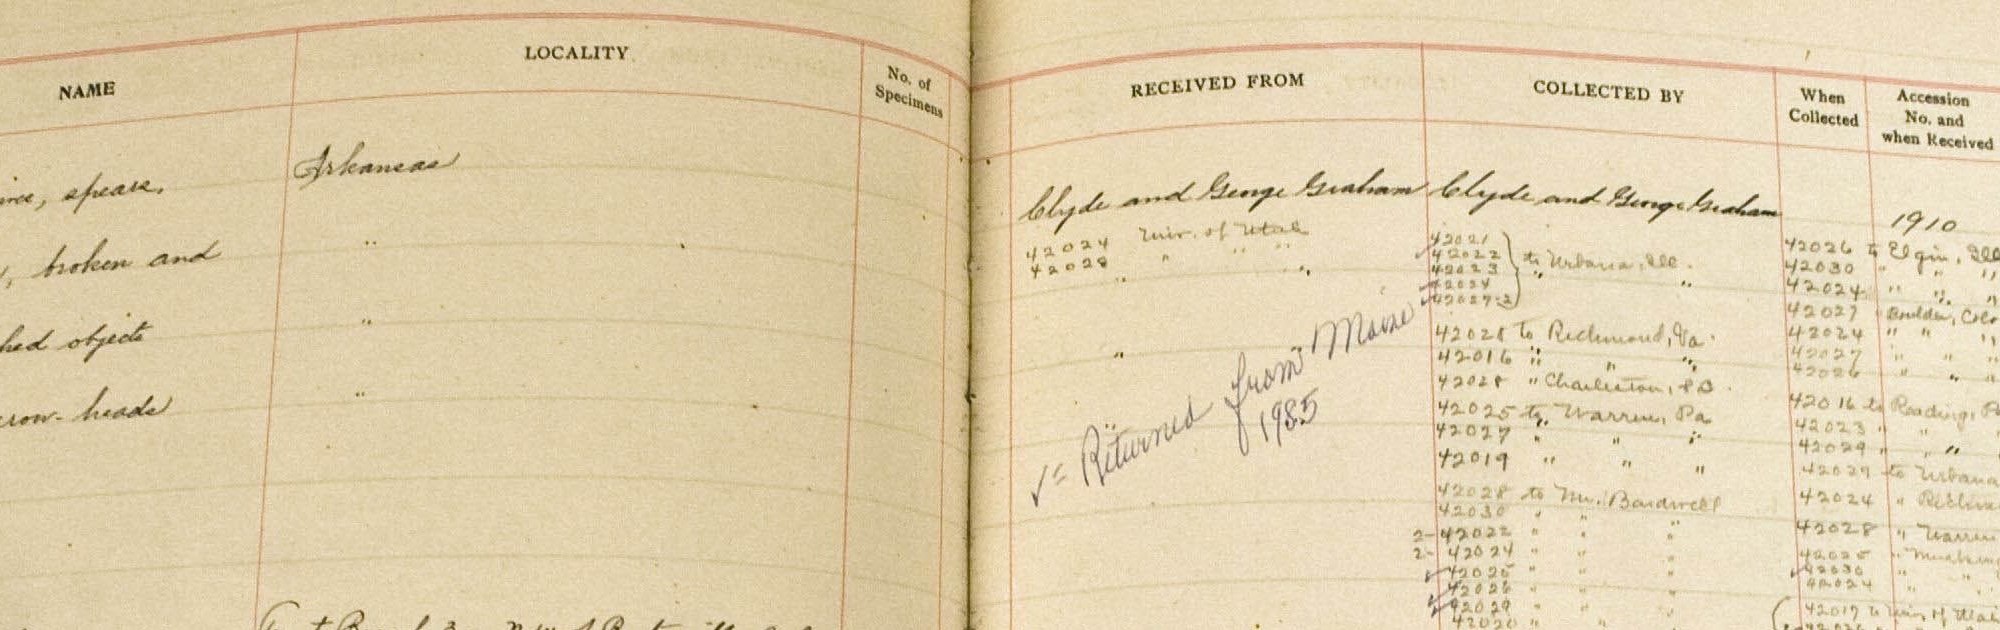 NAME
LOCALITY
No. of
Specimens
spears,
Arkansas
broken and
"
objects
"
heads
"
RECEIVED FROM
COLLECTED BY
When
Collected
Accession
No. and
when Received
Clyde and George Graham
Clyde and George Graham
1910
42024 Univ. of Utah
42028 " " "
" "
"
✓= Returned from Maine
1985
42021
42022
42023 to Urbana, Ill.
42024 " "
42027-2
42028 to Richmond, Va.
42016 " " "
42028 " Charleston, S.C.
42025 to Warren, Pa
42027 " " "
42019 " " "
42028 to Mr. Bardwell
42030 " " "
2- 42022 " " "
2- 42024 " " "
42025 " " "
42026 " " "
42029 " " "
42020 " "
42026 to Elgin, Ill
42030 " " "
42024 " " "
42027 " Boulder, Colo
42024 " " "
42027 " " "
42026 " " "
42016 to Reading, P
42023 " "
42029 " " "
42029 to Urbana
42024 "
42028 " Warren
42025 "
42030 " "
42024 "
42017 to Univ. of Mai